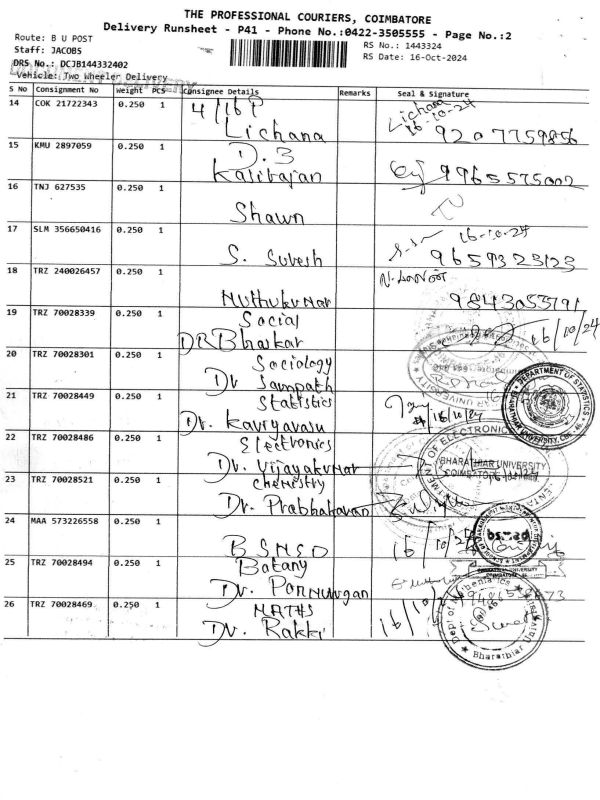 THE PROFESSIONAL COURIERS, COIMBATORE
Delivery Runsheet - P41 - Phone No.:0422-3505555 - Page No.:2
Route: B U POST
RS No.: 1443324
Staff: JACOBS
RS Date: 16-Oct-2024
DRS No.: DCJB144332402
Vehicle: Two Wheeler Delivery
S No Consignment No Weight PCS Consignee Details Remarks Seal & Signature
14 COK 21722343 0.250 1 4/16 P Lichana
Lichana 16-10-24
9207759856
15 KMU 2897059 0.250 1 D.3
Kalirajan 9965575002
16 TNJ 627535 0.250 1
Shawn
17 SLM 356650416 0.250 1 16-10-24
S. Suresh 9659323123
18 TRZ 240026457 0.250 1
Muthukumar 9843053791
19 TRZ 70028339 0.250 1 Social
DR Bhaskar 16/10/24
20 TRZ 70028301 0.250 1 Sociology
Dr Sampath
21 TRZ 70028449 0.250 1 Statistics
Dr. Kavryavasu 16/10/24
DEPARTMENT OF STATISTICS
22 TRZ 70028486 0.250 1 Electronics
Dr. Vijayakumar
BHARATHIAR UNIVERSITY
COIMBATORE
23 TRZ 70028521 0.250 1 Chemistry
Dr. Prabhakaran
24 MAA 573226558 0.250 1
BSMSD 16/10/24
25 TRZ 70028494 0.250 1 Botany
Dr. Ponmurugan
26 TRZ 70028469 0.250 1 MATHS
Dr. Rakki 16/10/
Dept of Mathematics
Bharathiar Univer